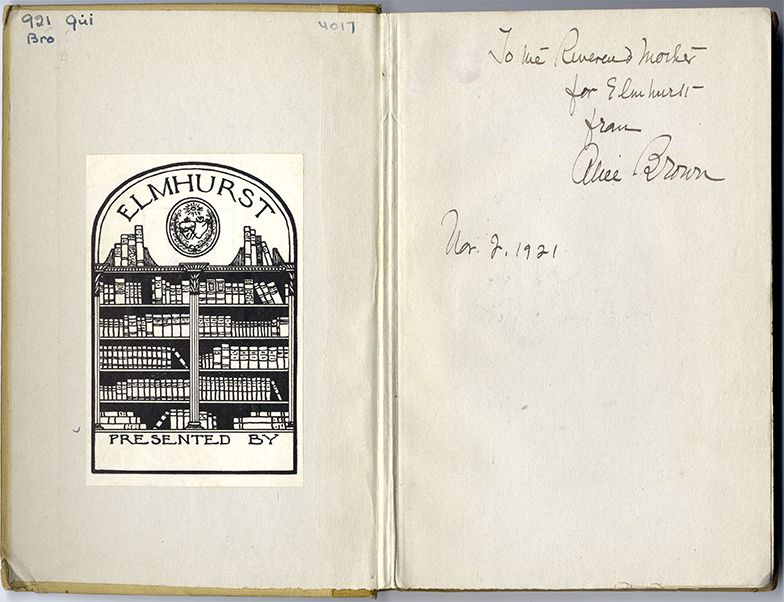 921 Gui
Bro
4017
ELMHURST
PRESENTED BY
To the Reverend Mother
for Elmhurst
from
Alice Brown
Nov. 2. 1921